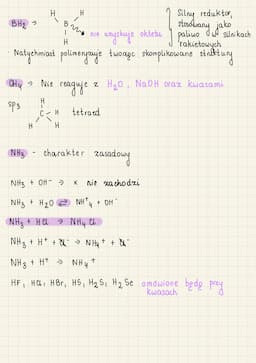 BH₃ → H H
B
H
→ nie uzyskuje oktetu
Silny reduktor,
stosowany jako
paliwo w silnikach
rakietowych
· Natychmiast polimeryzuje tworząc skomplikowane struktury
CH₄ → Nie reaguje z H₂O, NaOH oraz kwasami
sp3
H
C – H
H H
tetraedr
NH₃ - charakter zasadowy
NH₃ + OH⁻ → x nie zachodzi
NH₃ + H₂O ⇌ NH₄⁺ + OH⁻
NH₃ + HCl → NH₄Cl
NH₃ + H⁺ + Cl⁻ → NH₄⁺ + Cl⁻
NH₃ + H⁺ → NH₄⁺
HF, HCl, HBr, HS, H₂S, H₂Se omówione będą przy
kwasach